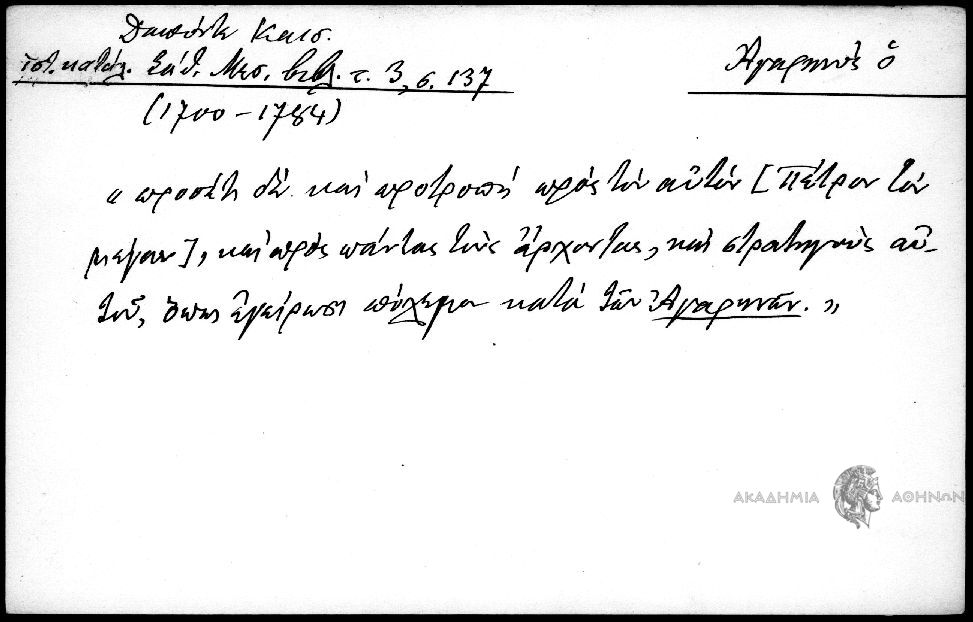 Δαπόντε Καισ.
ἱστ. κατάλ. Σάθ. Μεσ. βιβλ. τ. 3, σ. 137
(1700 – 1784)
Ἀγαρηνὸς ὁ
« προσέτι δὲ καὶ προτροπὴ πρὸς τὸν αὐτὸν [Πέτρον τὸν
μέγαν], καὶ πρὸς πάντας τοὺς ἄρχοντας, καὶ στρατηγοὺς αὐ-
τοῦ, ὅπως ἐγείρωσι πόλεμον κατὰ τῶν Ἀγαρηνῶν. »
ΑΚΑΔΗΜΙΑ ΑΘΗΝΩΝ